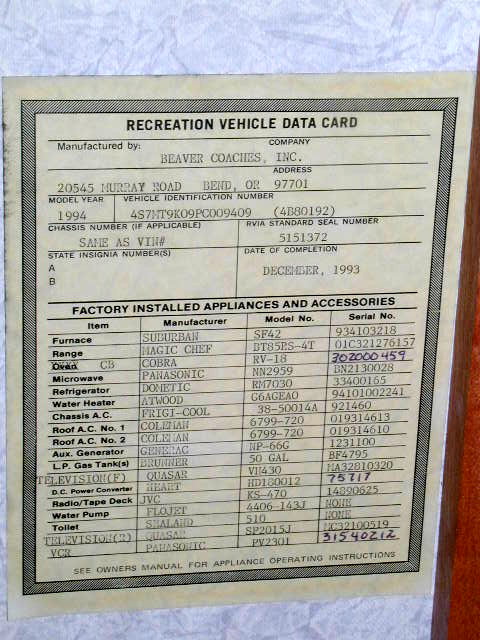 RECREATION VEHICLE DATA CARD
Manufactured by: COMPANY
BEAVER COACHES, INC.
ADDRESS
20545 MURRAY ROAD BEND, OR 97701
MODEL YEAR VEHICLE IDENTIFICATION NUMBER
1994 4S7MT9K09PC009409 (4B80192)
CHASSIS NUMBER (IF APPLICABLE) RVIA STANDARD SEAL NUMBER
SAME AS VIN# 5151372
STATE INSIGNIA NUMBER(S) DATE OF COMPLETION
A
DECEMBER, 1993
B
FACTORY INSTALLED APPLIANCES AND ACCESSORIES
Item Manufacturer Model No. Serial No.
Furnace SUBURBAN SF42 934103218
Range MAGIC CHEF BT85RS-4T 01C321276157
Oven CB COBRA RV-18 302000459
Microwave PANASONIC NN2959 BN2130028
Refrigerator DOMETIC RM7030 33400165
Water Heater ATWOOD G6AGEAO 94101002241
Chassis A.C. FRIGI-COOL 38-50014A 921460
Roof A.C. No. 1 COLEMAN 6799-720 019314613
Roof A.C. No. 2 COLEMAN 6799-720 019314610
Aux. Generator GENERAC NP-66G 1231100
L.P. Gas Tank(s) BRUNNER 50 GAL BF4795
TELEVISION(F) QUASAR VM430 MA32810320
D.C. Power Converter HEART HD180012 75717
Radio/Tape Deck JVC KS-470 14890625
Water Pump FLOJET 4406-143J NONE
Toilet SEALAND 510 NONE
TELEVISION(R) QUASAR SP2015J MC32100519
VCR PANASONIC PV2301 31540212
SEE OWNERS MANUAL FOR APPLIANCE OPERATING INSTRUCTIONS